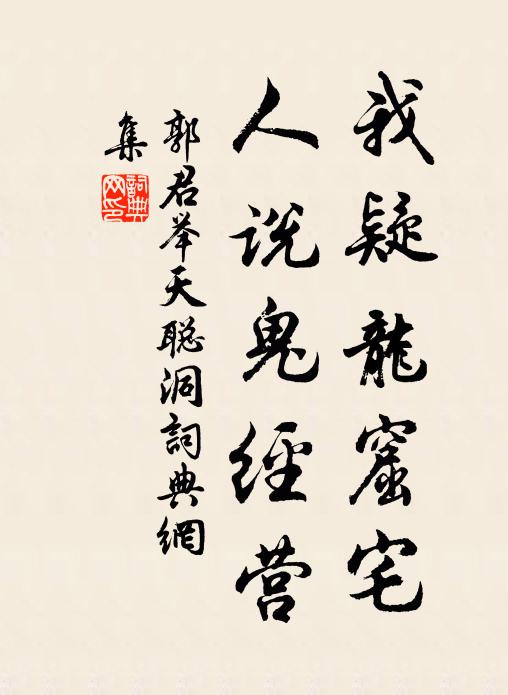 我疑龍窟宅
人说鬼經营
郭君举天聪洞詞典網
集
詞典网印